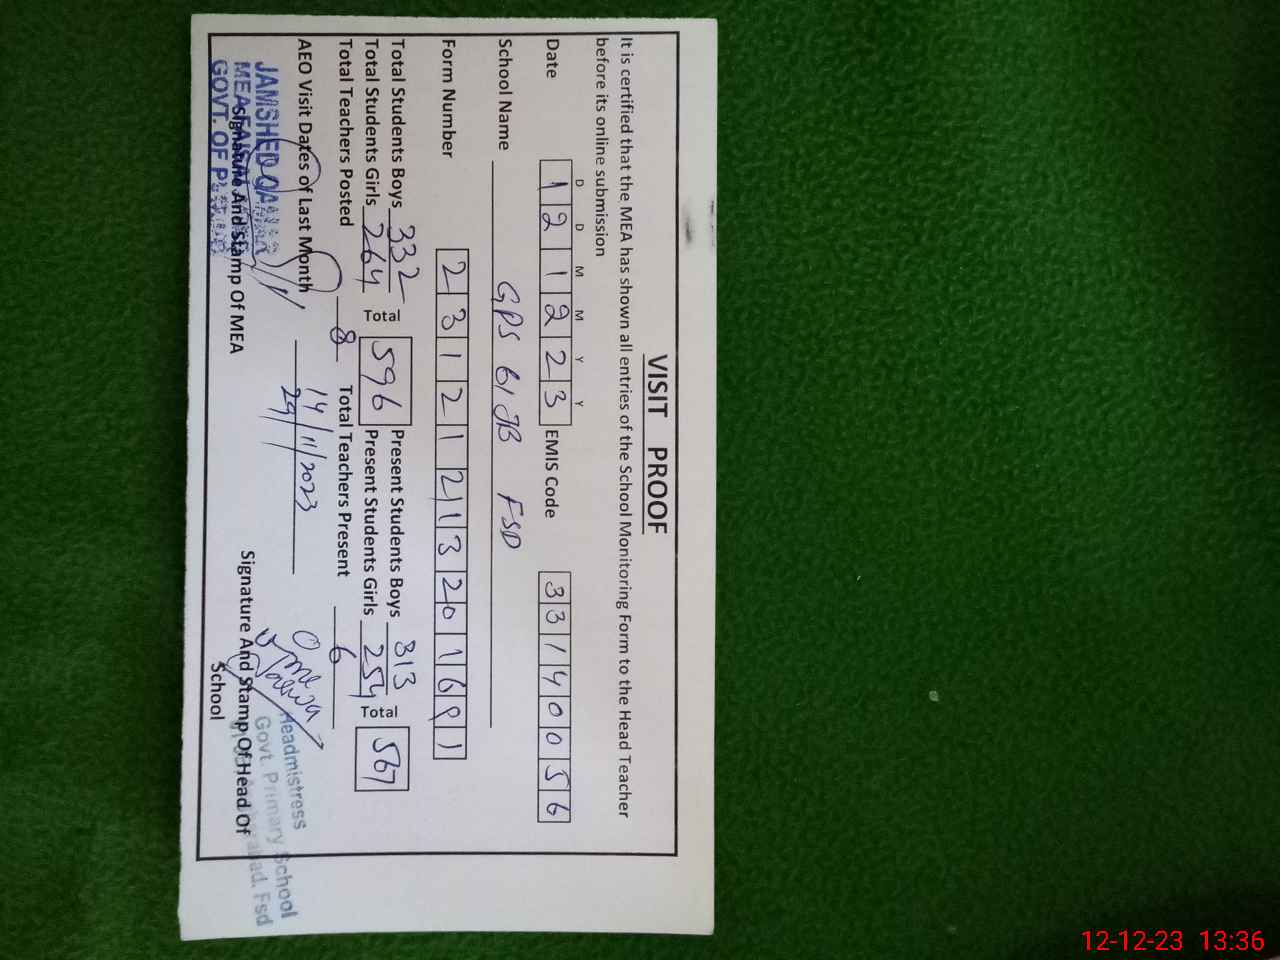 VISIT PROOF
It is certified that the MEA has shown all entries of the School Monitoring Form to the Head Teacher
before its online submission
D D M M Y Y
Date 1 2 1 2 2 3 EMIS Code 3 3 1 4 0 0 5 6
School Name GPS 61 JB FSD
Form Number 2 3 1 2 1 2 1 3 2 0 1 6
Total Students Boys 332 Present Students Boys 313
Total Students Girls 264 Total 596 Present Students Girls 254 Total 567
Total Teachers Posted 8 Total Teachers Present 6
AEO Visit Dates of Last Month 14/11/2023
29
JAMSHED
MEA
GOVT. OF
Signature And Stamp Of MEA
Headmistress
Govt. Primary School
Fsd
Signature And Stamp Of Head Of
School
12-12-23 13:36